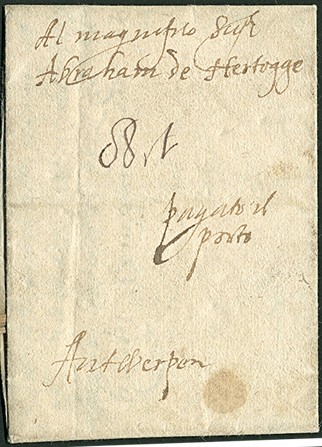 Al magnifico
Abraham de Hertogge
pagato il
porto
Antwerpen